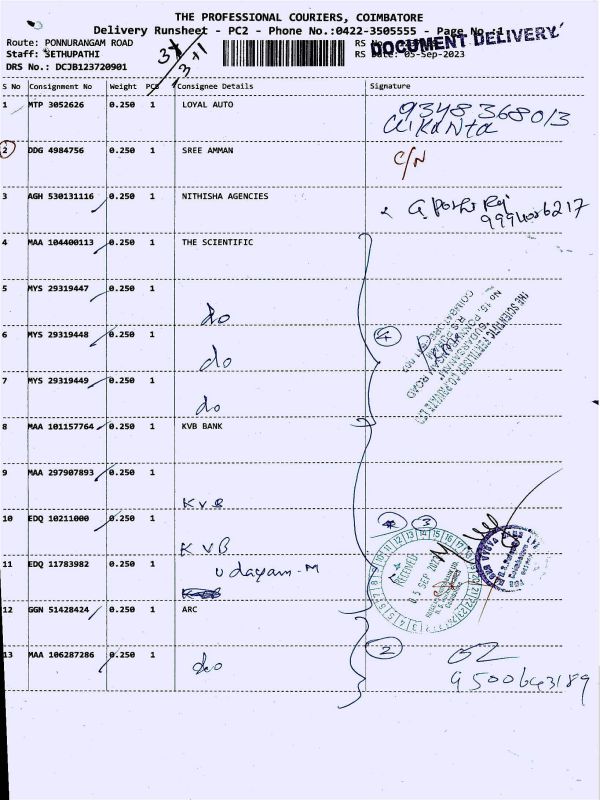 THE PROFESSIONAL COURIERS, COIMBATORE
Delivery Runsheet - PC2 - Phone No.:0422-3505555 - Page No.:1
DOCUMENT DELIVERY
Route: PONNURANGAM ROAD
Staff: SETHUPATHI
RS Date: 05-Sep-2023
DRS No.: DCJB123720901
3+1
S No Consignment No Weight PCS Consignee Details Signature
1 MTP 3052626 0.250 1 LOYAL AUTO
9348368013
2 DDG 4984756 0.250 1 SREE AMMAN C/N
3 AGH 530131116 0.250 1 NITHISHA AGENCIES
4 MAA 104400113 0.250 1 THE SCIENTIFIC
5 MYS 29319447 0.250 1
do
6 MYS 29319448 0.250 1 4
do
7 MYS 29319449 0.250 1
do
8 MAA 101157764 0.250 1 KVB BANK
9 MAA 297907893 0.250 1
KVB
10 EDQ 10211000 0.250 1 3
KVB
11 EDQ 11783982 0.250 1 Udayam-M
RECEIVED
05 SEP 2023
12 GGN 51428424 0.250 1 ARC
2
13 MAA 106287286 0.250 1 do
9500643189